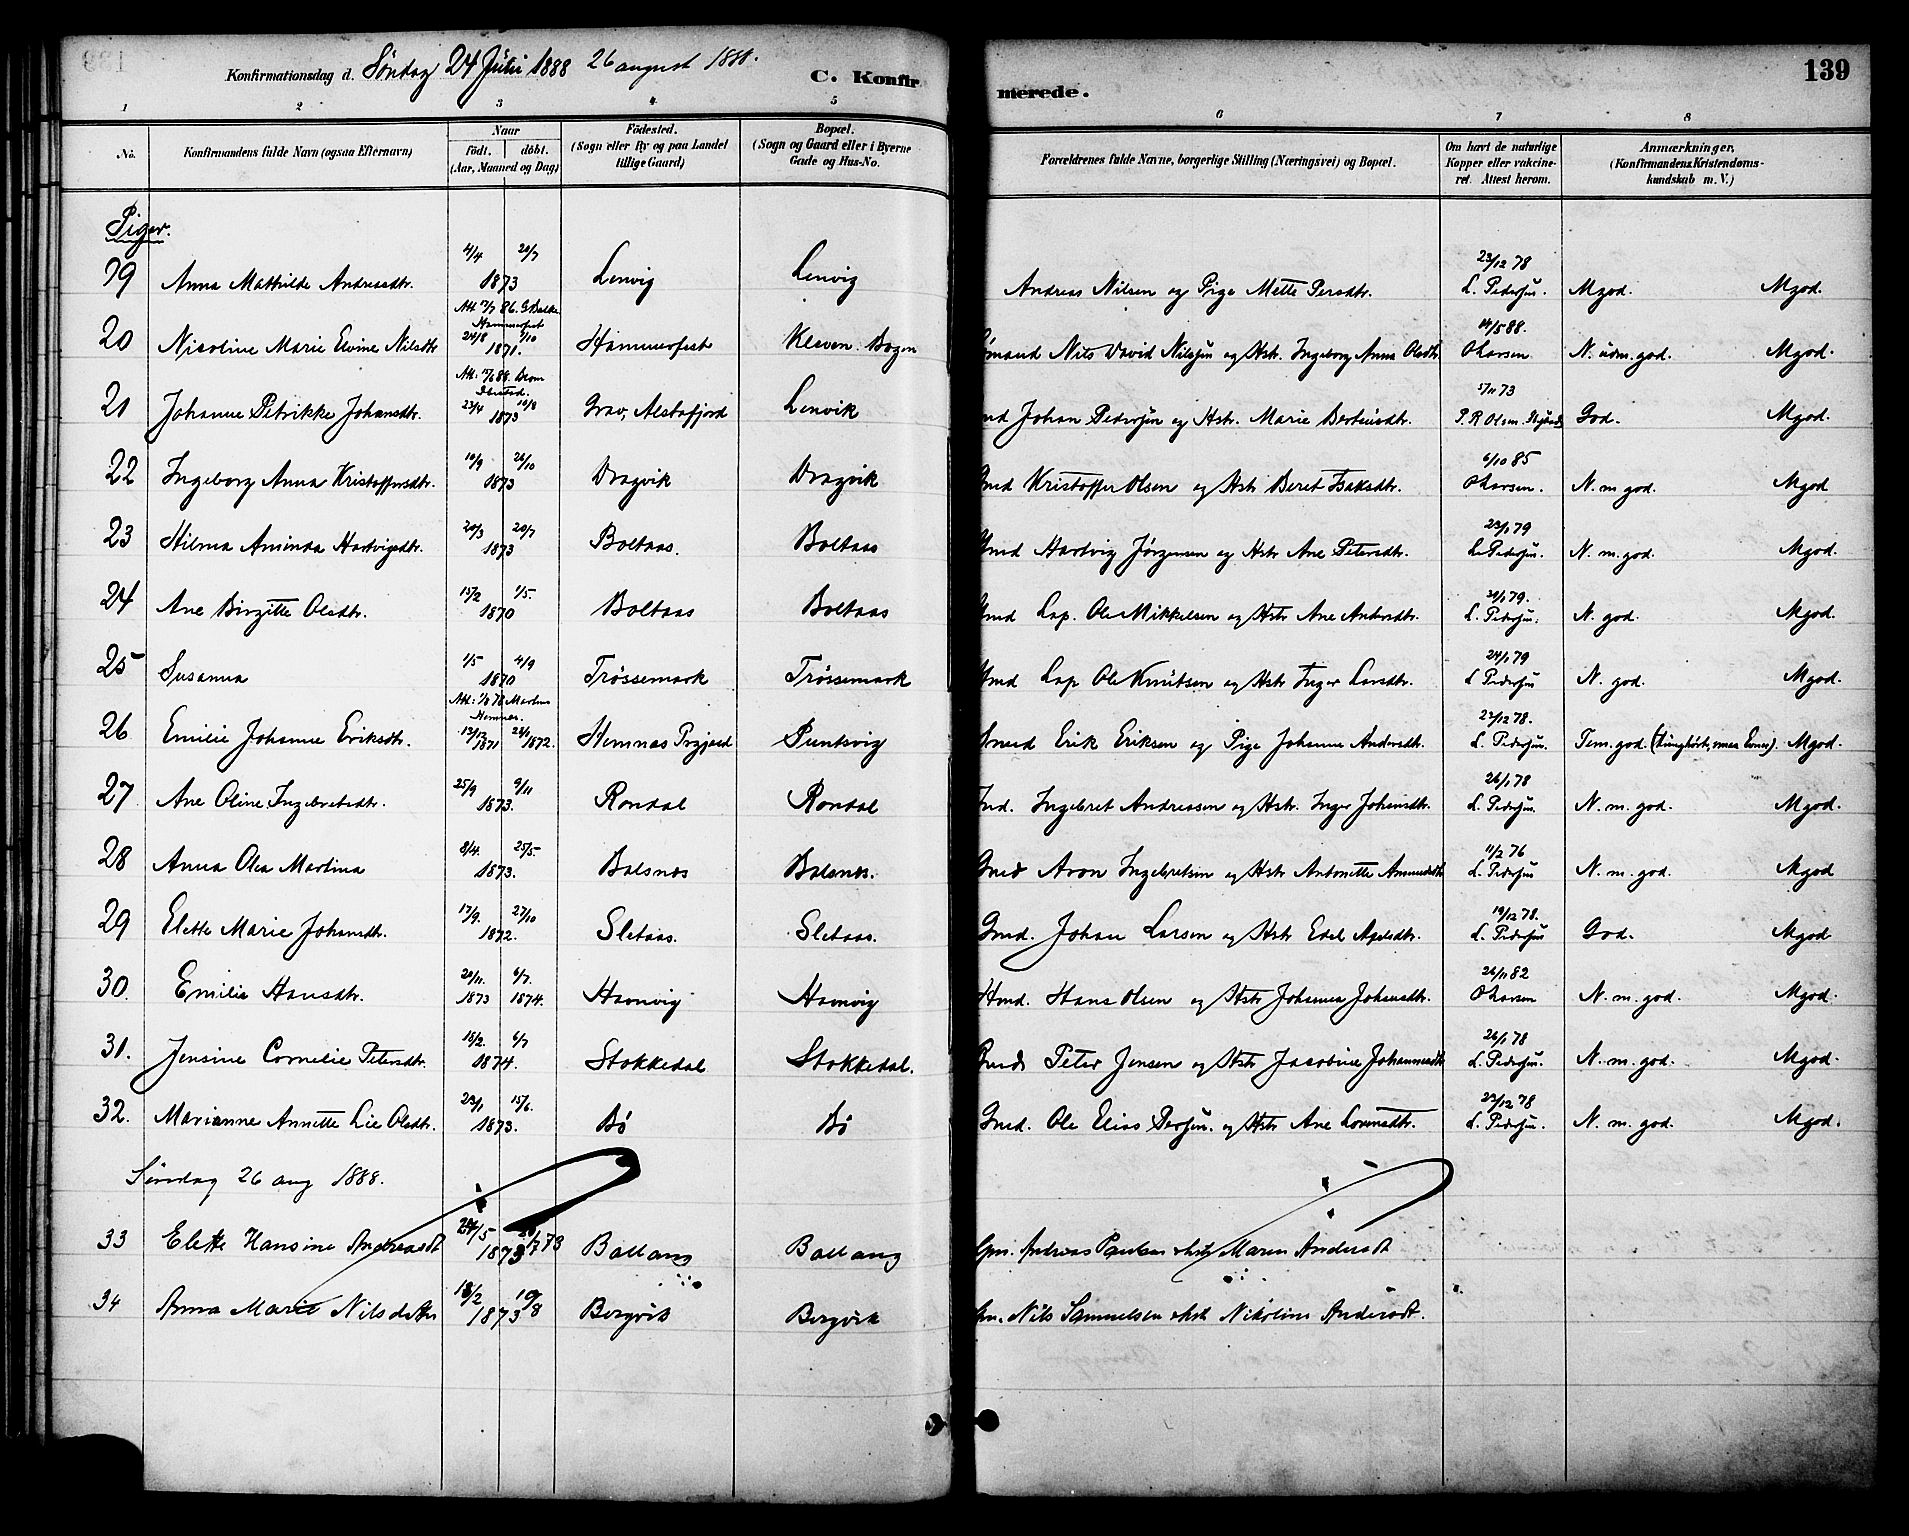 Konfirmationsdag d. Søndag 24 Juni 1888 26 august 1888. C. Konfirmerede. 139
1 2 3 4 5 6 7 8
No. Konfirmandens fulde Navn (ogsaa Efternavn) Naar födt. döbt. (Aar, Maaned og Dag) Födested. (Sogn eller By og paa Landet tillige Gaard) Bopæl. (Sogn og Gaard eller i Byerne Gade og Hus-No. Forældrenes fulde Navne, borgerlige Stilling (Næringsvei) og Bopæl. Om havt de naturlige Kopper eller vakcineret. Attest herom. Anmærkninger, (Konfirmandens Kristendomskundskab m. V.)
Piger.
19 Anna Mathilde Andreasdtr. 4/4 20/7 1873 Lenvig Lenvig Andreas Nilsen og Pige Mette Persdtr. 23/12 78 L. Pedersen. Mgod. Mgod.
Att. 17/7 86. Hammerfest
20 Nicoline Marie Elvine Nilsdtr 24/8 1/10 1871. Hammerfest Kleven. Bogen Gmand Nils David Nilssen og Hstr. Ingeborg Anna Olsdtr 14/5 88. O Larsen N. udm. god. Mgod.
21 Johanne Petrikke Johansdtr. 23/4 10/8 1873 Grav, Alstafjord Lenvik Johan Pedersen og Hstr. Marie Berteusdtr. 5/11 73 P. R Olsen. God. Mgod.
22 Ingeborg Anna Kristoffersdtr. 10/9 26/10 1873 Dragvik Dragvik Gmd Kristoffer Olsen og Hstr Beret Isaksdtr. 6/10 85 O Larsen. N. m. god. Mgod
23 Hilma Aminda Hartvigsdtr. 20/3 20/7 1873 Boltaas. Boltaas Gmd Hartvig Jørgensen og Hstr Ane Petersdtr. 23/1 79 L. Pedersen. N. m. god. Mgod.
24 Ane Birgitte Olsdtr. 15/2 1/5. 1870 Boltaas Boltaas Gmd Lap. Ole Mikkelsen og Hstr Ane Andersdtr. 24/1 79. L. Pedersen. N. god. Mgod.
25 Susanna 1/5 4/9 1870 Trøssemark Trøssemark Gmd Lap Ole Knutsen og Hstr Inger Larsdtr. 24/1 79 L Pedersen N. god. Mgod.
Hemnæs.
26 Emilie Johanne Eriksdtr. 12/12 1871 24/1 1872. Hemnæs Prgjæld Puntsvig Erik Eriksen og Pige Johanne Andersdtr. 27/12 78. L. Pedersen. Tem. god. (tunghørt, smaa Evner). Mgod.
27 Ane Oline Ingebretsdtr. 25/9 9/11 1873. Rondal Rondal Ingebret Andreassen og Hstr. Inger Johansdtr. 26/1 78 L. Pedersen N. m. god. Mgod.
28 Anna Olea Martina 8/4. 25/5. 1873. Balsnes Balsnes. Gmd Aron Ingebretsen og Hstr Antonette Ammundsdtr 11/2 76 L. Pedersen N. m. god. Mgod
29 Elette Marie Johansdtr. 17/9. 27/10 1872. Sletaas. Sletaas. Gmd. Johan Larsen og Hstr Edel Axelsdtr. 19/12 78. L. Pedersen God. Mgod
30. Emilie Hansdtr. 20/11. 1873 6/7 1874. Havnvig Havnvig Hmd. Hans Olsen og Hstr Johanna Johansdtr. 26/11 82 O Larsen N. m. god. Mgod.
31. Jensine Cornelie Petersdtr. 15/2. 6/7 1874. Stokkedal Stokkedal. Gmd Peter Jensen og Hstr Jacobine Johannesdtr 26/1 78 L. Pedersen. N. m. god. Mgod.
32. Marianne Annette Lie Olsdtr. 23/1 15/6. 1873. Bø Bø Gmd. Ole Elias Persen. og Hstr Ane Lorensdtr. 23/12 78 L. Pedersen. N. m. god. Mgod.
Søndag 26 aug 1888.
33 Elette Hansine Andreasdt 24/5 1873 Ballang Ballang Gm. Andreas Paulsen Maren Andersdt
34 Anna Marie Nilsdatter 18/2 10/8 1873 Bergvik Bergvik Gm. Nils Samuelsen Nikoline Andersdt.